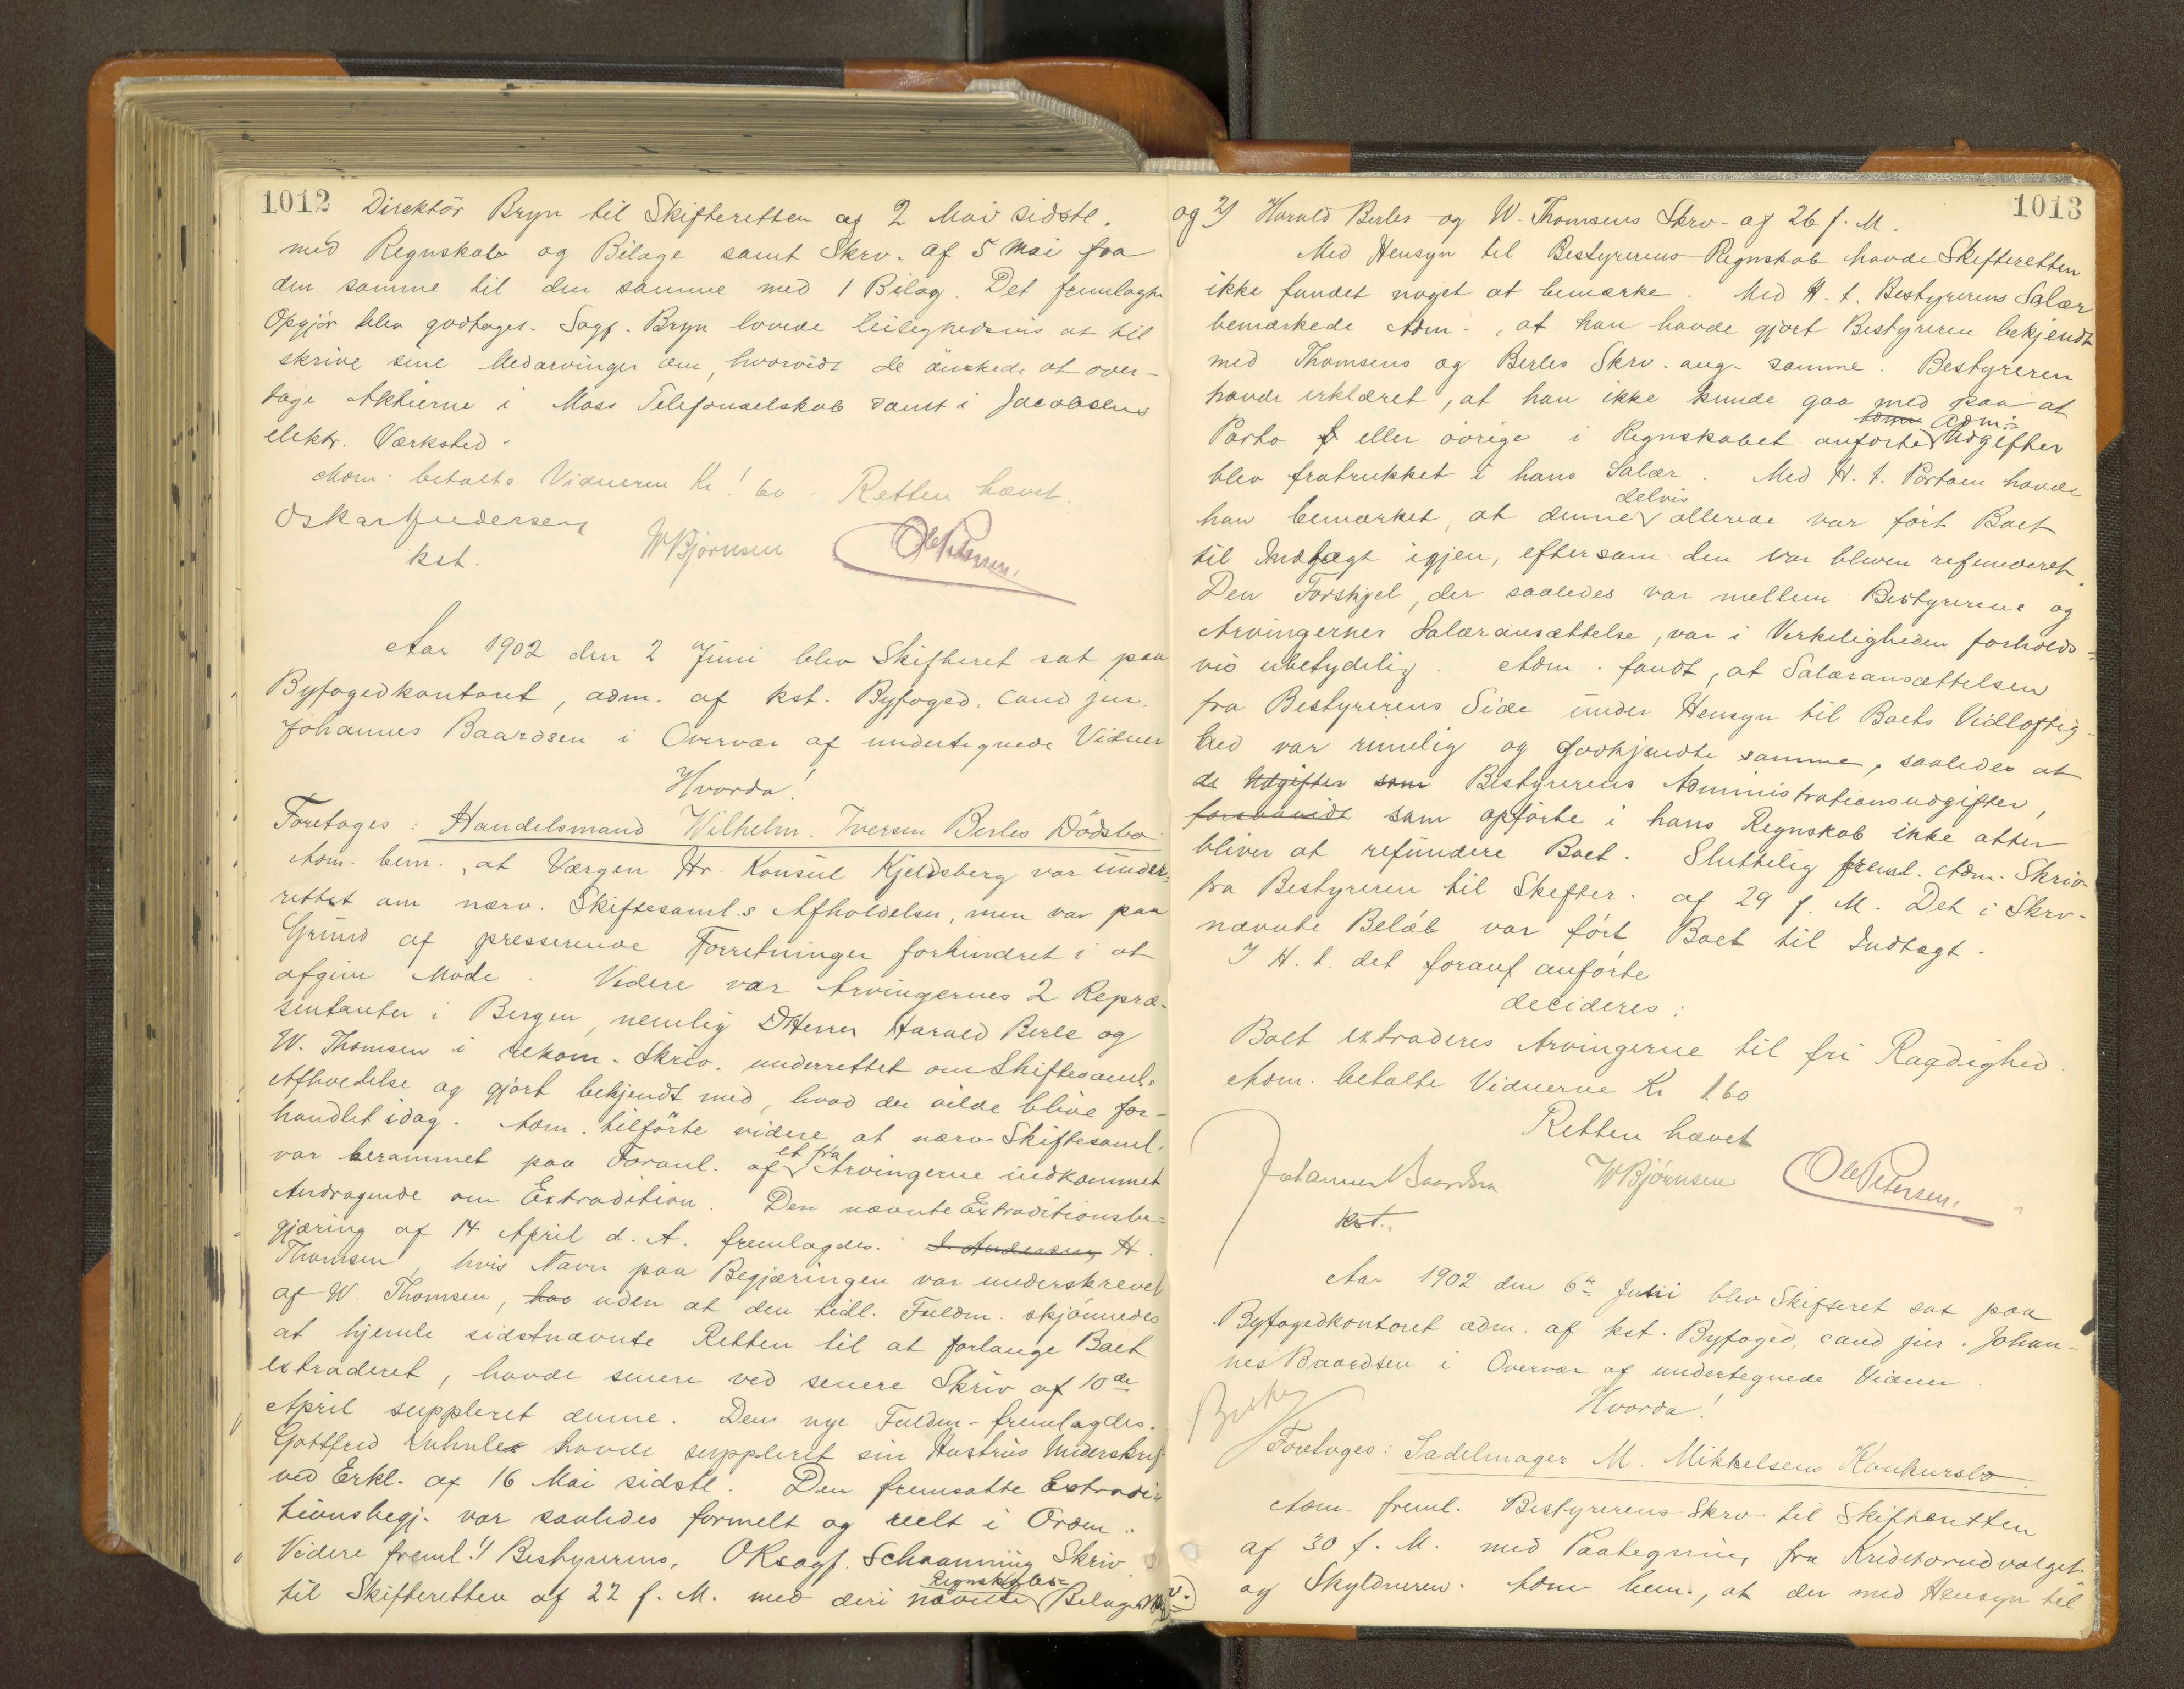 1012
Direktör Bryn til Skifteretten af 2 Mai sidstl.
med Regnskab og Bilage samt Skrv. af 5 Mai fra
den samme til den samme med 1 Bilag. Det fremlagte
Opgjör blev godtaget. Sagf. Bryn lovede leilighedsvis at til
skrive sine Medarvinger om, hvorvidt de önskede at over-
tage Aktierne i Moss Telefonselskab samt i Jacobsens
elektr. Værksted.
Adm. betalte Vidnerne Kr 1.60. Retten hævet.
Oskar Andersen
kst.
W Bjørnsen
Ole Petersen.
Aar 1902 den 2 Juni blev Skifteret sat paa
Byfogedkontoret, adm. af kst. Byfoged, cand jur.
Johannes Baardsen i Overvær af undertegnede Vidner
Hvorda!
Foretoges: Handelsmand Wilhelm Iversen Berles Dödsbo
Adm. bem., at Værgen Hr. Konsul Kjeldsberg var under-
rettet om nærv. Skiftesaml.s Afholdelse, men var paa
Grund af presserende Forretninger forhindret i at
afgive Møde. Videre var Arvingernes 2 Repræ-
sentanter i Bergen, nemlig DHerrer Harald Berle og
W. Thomsen i rekom. Skriv. underrettet om Skiftesaml.s
Afholdelse og gjort bekjendt med, hvad der vilde blive for-
handlet idag. Adm. tilförte videre at nærv. Skiftesaml.
var berammet paa Foranl. af et fra Arvingerne indkommet
Andragende om Extradition. Den nævnte Extraditionsbe-
gjæring af 14 April d. A. fremlagdes. I. Andersen, H.
Thomsen, hvis Navn paa Begjæringen var underskrevet
af W. Thomsen, hav uden at den tidl. Fuldm. skjönnedes
at hjemle sidstnævnte Retten til at forlange Boet
extraderet, havde senere ved senere Skriv af 10de
April suppleret denne. Den nye Fuldm. fremlagdes.
Gottfred Kuhnle havde suppleret sin Hustrus Underskrift
ved Erkl. af 16 Mai sidstl. Den fremsatte Extradi-
tionsbegj. var saaledes formelt og reelt i Orden.
Videre freml. 1) Bestyrerens, OKsagf. Schaanning Skriv
til Skifteretten af 22 f. M. med deri nævnte Regnskabs- Bilage
1013
og 2) Harald Berles og W. Thomsens Skrv. af 26 f. M.
Med Hensyn til Bestyrerens Regnskab havde Skifteretten
ikke fundet noget at bemærke. Med H. t. Bestyrerens Salær
bemærkede Adm., at han havde gjort Bestyreren bekjendt
med Thomsens og Berles Skrv. ang. samme. Bestyreren
havde erklæret, at han ikke kunde gaa med paa at
Porto f eller övrige i Regnskabet anförte adm.- Udgifter
blev fratrukket i hans Salær. Med H. t. Portoen havde
han bemærket, at denne delvis allerede var fört Boet
til Indtægt igjen, eftersom den var bleven refunderet.
Den Forskjel, der saaledes var mellem Bestyrerens og
Arvingernes Salæransættelse, var i Virkeligheden forholds-
vis ubetydelig. Adm. fandt, at Salæransættelsen
fra Bestyrerens Side under Hensyn til Boets Vidlöftig-
hed var rimelig og Godkjendte samme, saaledes at
de Udgifter som Bestyrerens Administrationsudgifter,
forsaavidt som opförte i hans Regnskab ikke atter
bliver at refundere Boet. Sluttelig freml. Adm. Skriv.
fra Bestyreren til Skifter. af 29 f. M. Det i Skrv.
nævnte Belöb var fört Boet til Indtægt.
I H. t. det foranf anförte
decideres:
Boet extraderes Arvingerne til fri Raadighed.
Adm. betalte Vidnerne Kr 1.60
Retten hævet
Johannes Baardsen
kst.
W Bjørnsen
Ole Petersen.
Aar 1902 den 6te Juni blev Skifteret sat paa
Byfogedkontoret adm. af kst. Byfoged, cand jur. Johan-
nes Baardsen i Overvær af undertegnede Vidner.
Hvorda!
Foretoges: Sadelmager M. Mikkelsens Konkursbo.
Adm. freml. Bestyrerens Skrv til Skifteretten
af 30 f. M. med Paategning fra Kreditorudvalget
og Skyldneren. Adm bem., at der med Hensyn til